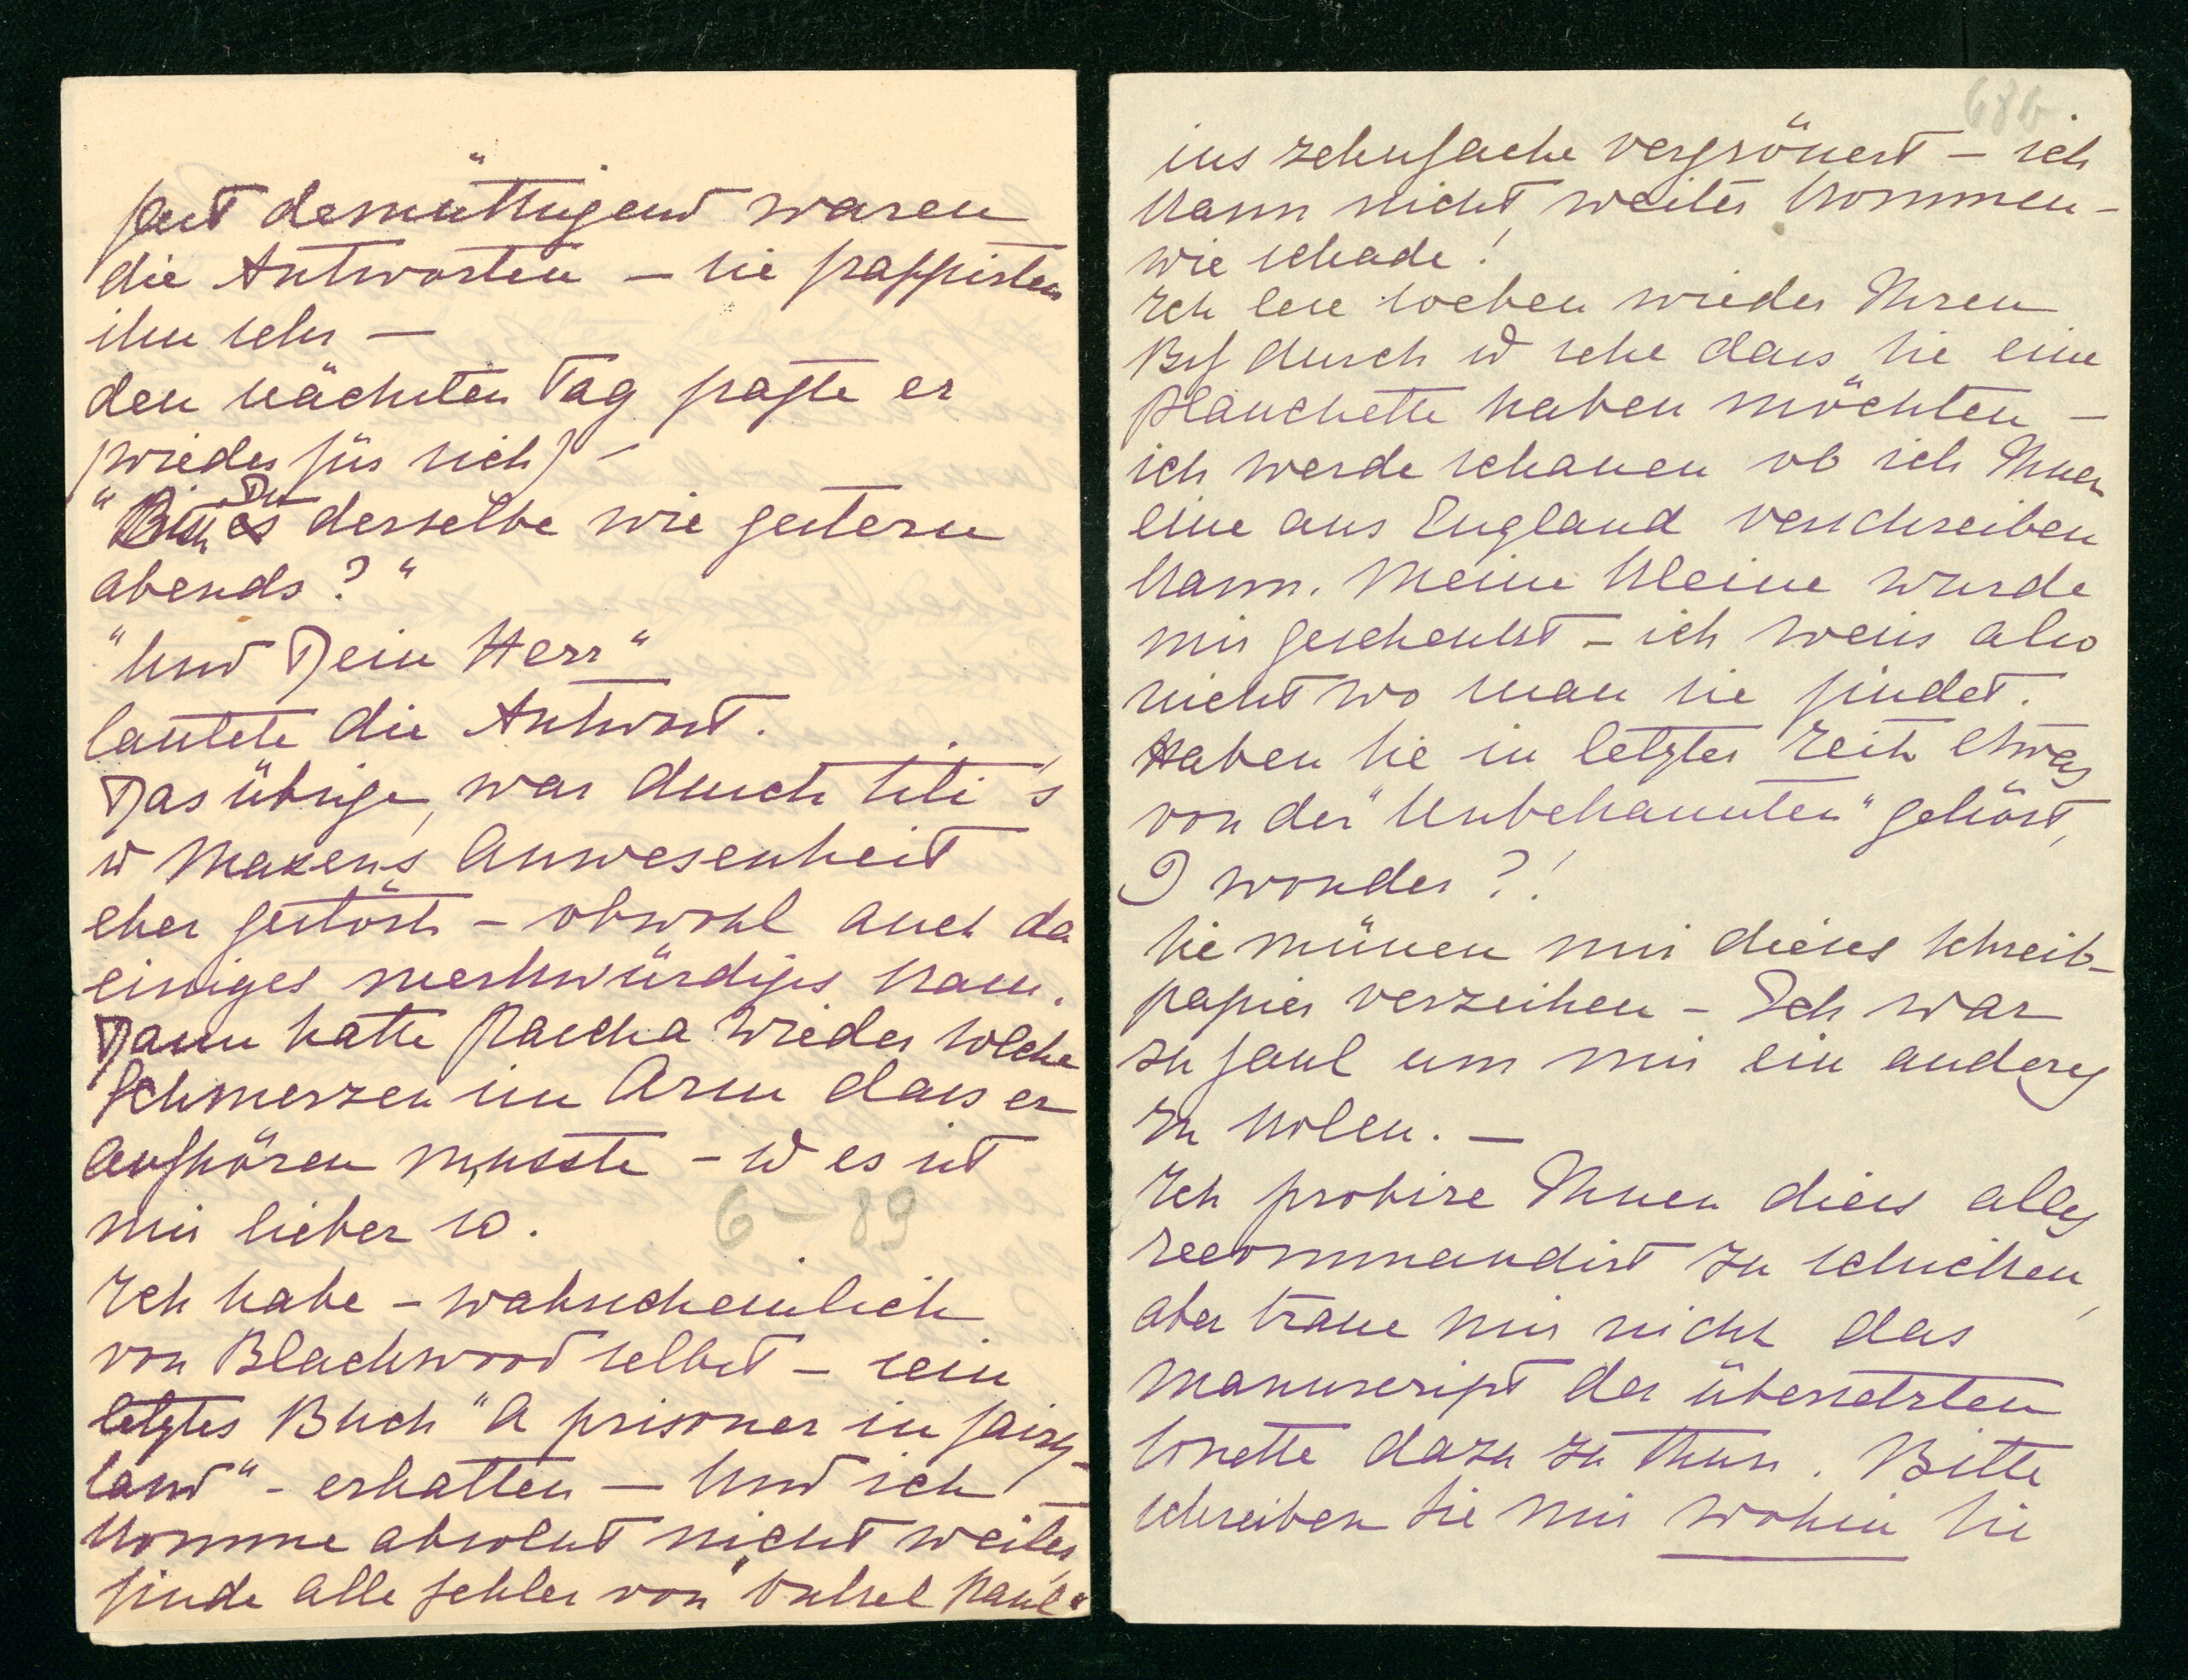 fast demüttigend waren
die Antworten – sie frappirten
ihn sehr –
den nächsten Tag fragte er
(wieder für sich) –
"Bist Du derselbe wie gestern
abends?"
"Und Dein Herr"
lautete die Antwort.
Das übrige, war durch Titi's
u Maxens Anwesenheit
eher gestört – obwohl auch da
einiges merkwürdiges kam.
Dann hatte Pascha wieder solche
Schmerzen im Arm dass er
aufhören musste – u es ist
mir lieber so.
6–89
Ich habe – wahrscheinlich
von Blackwood selbst – sein
letztes Buch "A prisoner in fairy-
land" – erhalten – Und ich
komme absolut nicht weiter,
finde alle Fehler von "Onkel Paul"
68b
ins zehnfache vergrössert – ich
kann nicht weiter kommen –
wie schade!
Ich lese soeben wieder Ihren
Brf durch u sehe dass Sie eine
Planchette haben möchten –
ich werde schauen ob ich Ihnen
eine aus England verschreiben
kann. Meine kleine wurde
mir geschenkt – ich weis also
nicht wo man sie findet.
Haben Sie in letzter Zeit etwas
von der "Unbekannten" gehört,
I wonder?!
Sie müssen mir dieses Schreib-
papier verzeihen – Ich war
zu faul um mir ein anderes
zu holen. –
Ich probire Ihnen dies alles
recommandirt zu schicken,
aber traue mir nicht das
Manuscript der übersetzten
Sonette dazu zu thun. Bitte
schreiben Sie mir wohin Sie